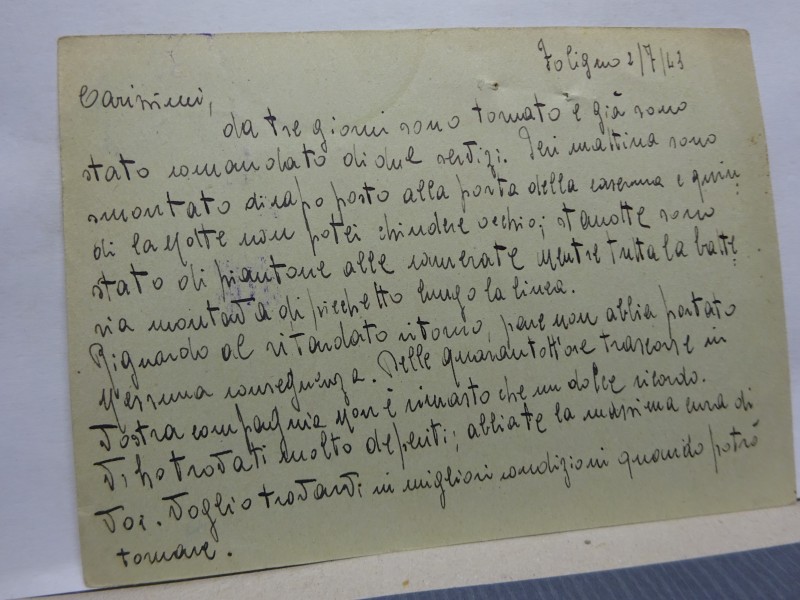 Foligno 2/7/43
Carissimi,
da tre giorni sono tornato e già sono
stato comandato di due servizi. Ieri mattina sono
smontato di capo posto alla porta della caserma e quin:
di la notte non potei chiudere occhio; stanotte sono
stato di piantone alle camerate mentre tutta la batte:
ria montava di picchetto lungo la linea.
Riguardo al ritardato ritorno, pare non abbia portato
nessuna conseguenza. Delle quarantott'ore trascorse in
vostra compagnia non è rimasto che un dolce ricordo.
Vi ho trovati molto deperiti; abbiate la massima cura di
voi. Voglio trovarvi in migliori condizioni quando potrò
tornare.